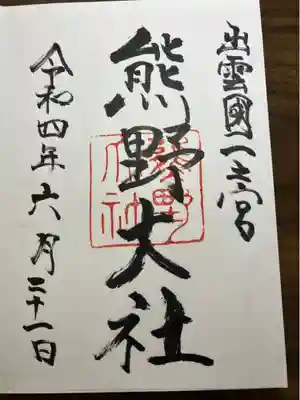 出雲國一之宮
熊野大社
令和四年六月二十一日
熊野
大社